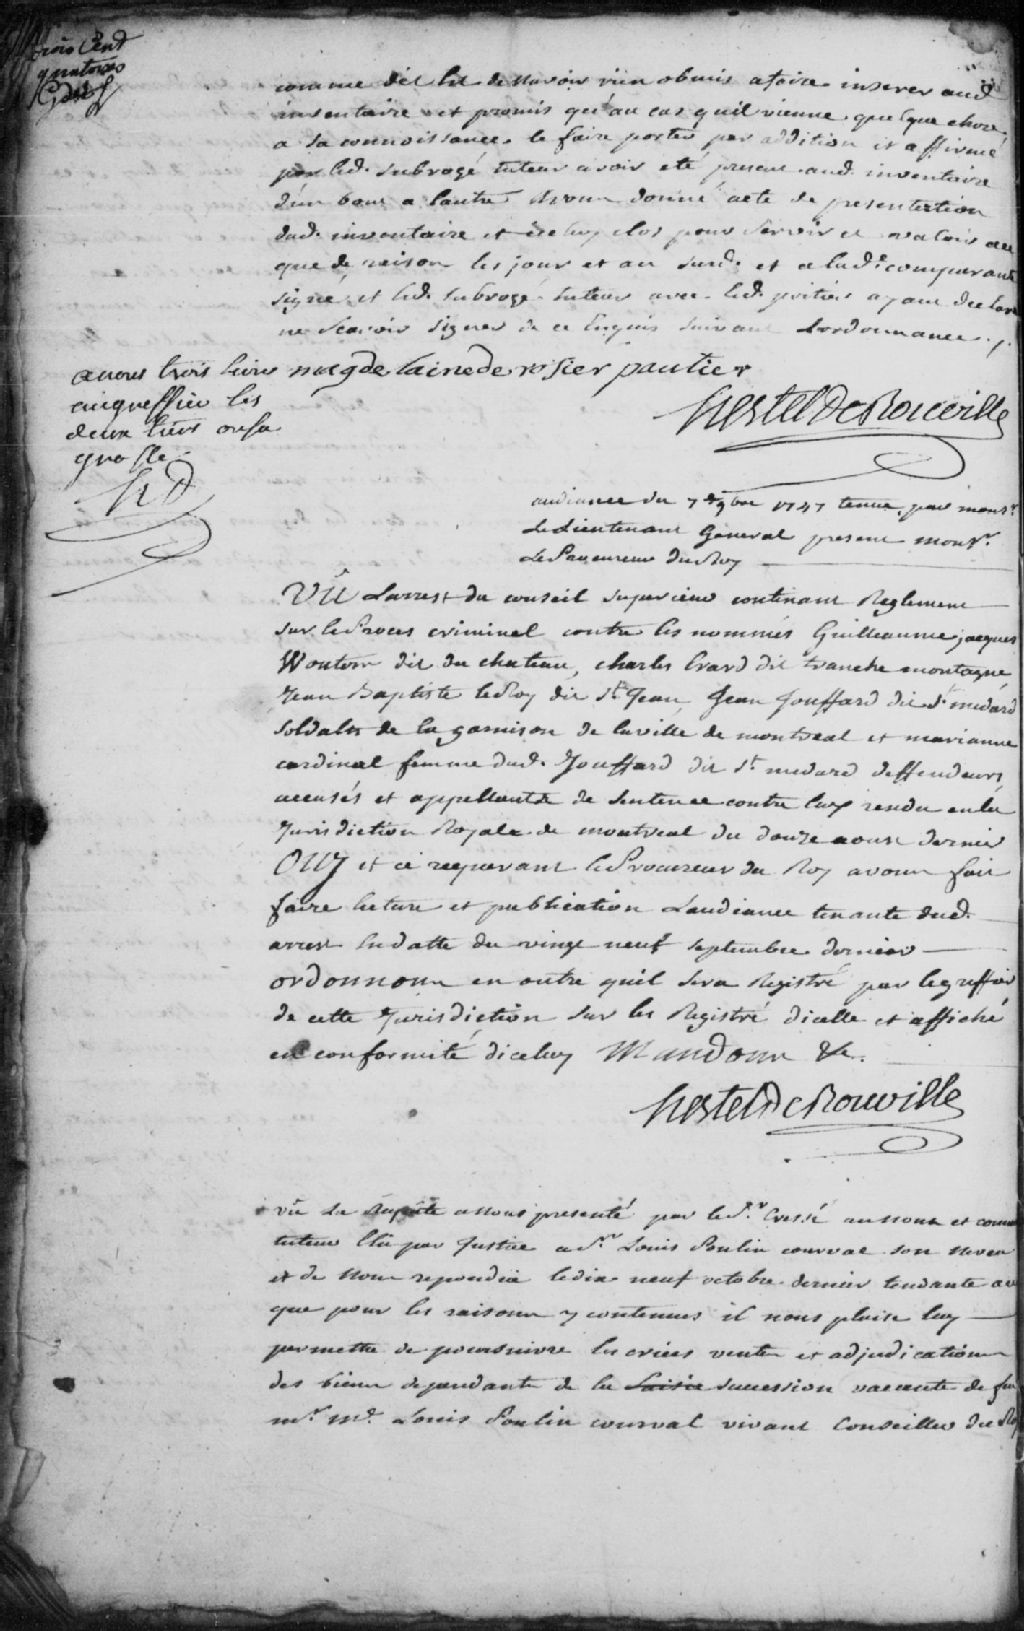 trois Cent
quatorze
comme dit est de navoir rien obmis a faire inserer aud.
inventaire et promis qu'au cas quil vienne quelque chose
a sa connoissance le faire porter par addition et affirmé
par led. subrogé tuteur avoir eté present aud. inventaire
d'un bout a lautre avons donné acte de presentation
dud. inventaire et iceluy clos pour servir et valoir ce
que de raison les jour et an susd. et a lad.e comparante
signé et led. subrogé tuteur avec led. potier ayant declaré
ne scavoir signer de ce enquis suivant Lordonnance ./.
a nous trois livres
au greffier les
deux tiers outre sa
grosse
HD
magdelaine de rosier pautier
hertel De Rouville
audiance du 7 9bre 1747 tenue par mons.r
Le Lieutenant General present mons.r
Le Procureur Du Roy
VÛ Larrest du conseil superieur contenant Reglement
sur le Proces criminel contre les nommés Guilleaume jacques
Woutom dit du chateau, charles Erard dit tranche montagne
Jean Baptiste le Roy dit S.t Jean, Jean Jouffard dit S.t medard
Soldats de la garnison de la ville de montreal et marianne
cardinal femme dud. Jouffard dit S.t medard deffendeurs
accusés et appellants de Sentence contre eux rendu en la
Jurisdiction Royale de montreal du douze aoust dernier
OUY et ce requerant le Procureur du Roy avons fait
faire lecture et publication Laudiance tenante dud.
arrest en datte du vingt neuf septembre dernier
ordonnons en outre quil sera Registré par le greffier
de cette Jurisdiction sur les Registre dicelle et affiché
en conformité diceluy Mandons &c.
hertel De Rouville
vû La Requête a nous presenté par le S.r Cressé au nom et comme
tuteur Elu par Justice a S.r Louis Poulin courval son neveu
et de Nous repondüe ledia neuf octobre dernier tendante a ce
que pour les raisons y contenues il nous plaise luy
permettre de poursuivre les criées vente et adjudication
des biens dependants de la Saisie succession vacante de feu
m.r m.e Louis Poulin courval vivant Conseiller du Roy